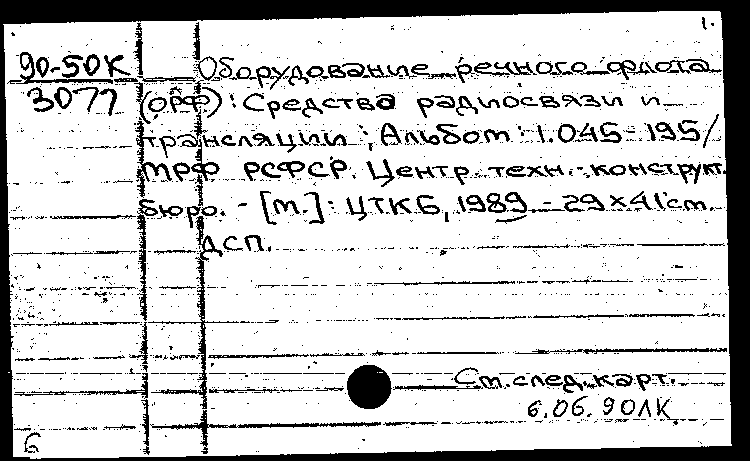 1.
90-50К Оборудование речного флота
3077 (ОРФ): Средства радиосвязи и
трансляции; Альбом: 1.045-195/
МРФ РСФСР. Центр. техн.-конструкт.
бюро. - [М.]: ЦТКБ, 1989 - 29×41 cm.
ДСП.
См. след. карт.
6.06.90ЛК
6